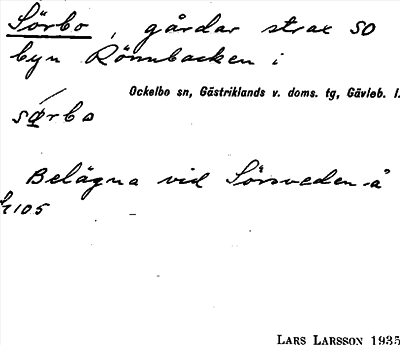 Sörbo, gårdar strax SO
byn Rönnbacken i
Ockelbo sn, Gästriklands v. doms. tg, Gävleb. l.
sǿrbo
Belägna vid Sörsveden-å
105
LARS LARSSON 1935